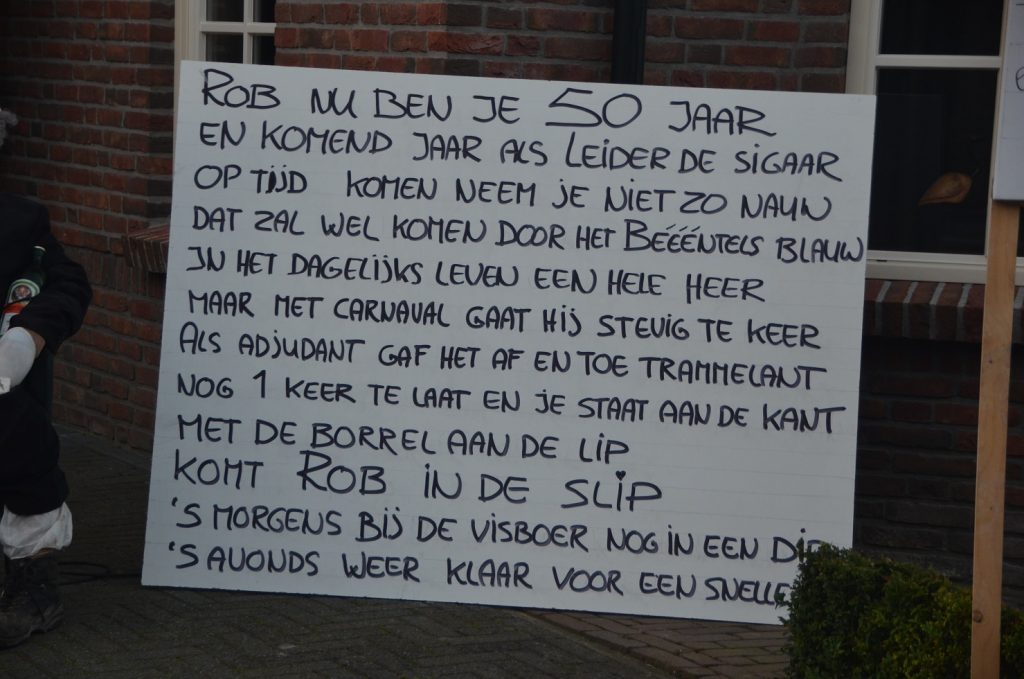 ROB NU BEN JE 50 JAAR
EN KOMEND JAAR ALS LEIDER DE SIGAAR
OP TIJD KOMEN NEEM JE NIET ZO NAUW
DAT ZAL WEL KOMEN DOOR HET BEËËËNTELS BLAUW
IN HET DAGELIJKS LEVEN EEN HELE HEER
MAAR MET CARNAVAL GAAT HIJ STEVIG TE KEER
ALS ADJUDANT GAF HET AF EN TOE TRAMMELANT
NOG 1 KEER TE LAAT EN JE STAAT AAN DE KANT
MET DE BORREL AAN DE LIP
KOMT ROB IN DE SLIP
'S MORGENS BIJ DE VISBOER NOG IN EEN
'S AVONDS WEER KLAAR VOOR EEN SNELLE